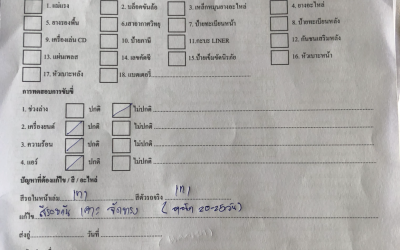 1. แม่แรง 2. บล็อคขันล้อ 3. เหล็กหมุนยางอะไหล่ 4. ยางอะไหล่
5. ยางรองพื้น 6. เสาอากาศวิทยุ 7. ป้ายทะเบียนหน้า 8. ป้ายทะเบียนหลัง
9. เครื่องเล่น CD 10. ป้ายภาษี 11. กะบะ LINER 12. กันชนเสริมหลัง
13. แผ่นเพลส 14. เลขคัสซี 15. ป้ายเข็มขัดนิรภัย 16. หัวเบาะหน้า
17. หัวเบาะหลัง 18. แบตเตอรี่
การทดสอบการขับขี่
1. ช่วงล่าง ปกติ ไม่ปกติ
2. เครื่องยนต์ ปกติ ไม่ปกติ
3. ความร้อน ปกติ ไม่ปกติ
4. แอร์ ปกติ ไม่ปกติ
ปัญหาที่ต้องแก้ไข / สี / อะไหล่
สีรถในหน้าเล่ม เทา สีตัวรถจริง เทา
แก้ไข (20-25วัน)
ส่งอู่ วันที่